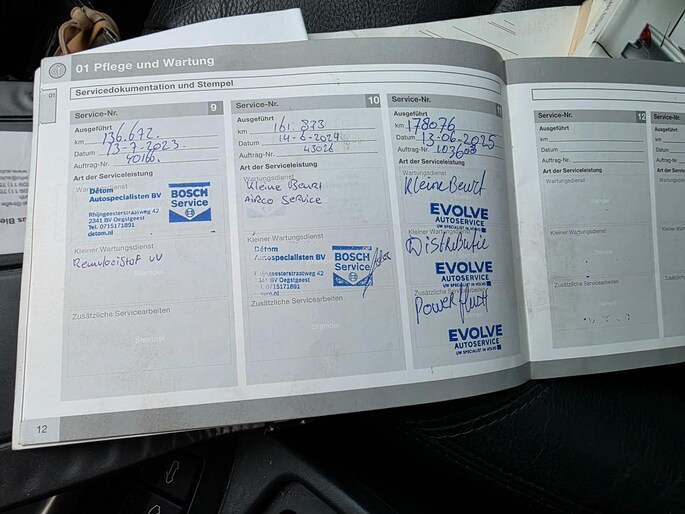 01 Pflege und Wartung
01
Servicedokumentation und Stempel
Service-Nr. 9
Ausgeführt
km 136.672.
Datum 13-7-2023
Auftrag-Nr. 40166.
Art der Serviceleistung
Wartungsdienst
Détom
Autospecialisten BV
Rhijngeesterstraatweg 42
2341 BV Oegstgeest
Tel. 0715171891
detom.nl
BOSCH
Service
Kleiner Wartungsdienst
Remvloeistof VV
Stempel
Zusätzliche Servicearbeiten
Stempel
Service-Nr. 10
Ausgeführt
km 161.873
Datum 14-6-2024
Auftrag-Nr. 43026
Art der Serviceleistung
Wartungsdienst
Kleine Beurt
Airco Service
Kleiner Wartungsdienst
Détom
Autospecialisten BV
Rhijngeesterstraatweg 42
2341 BV Oegstgeest
Tel. 0715171891
detom.nl
BOSCH
Service
Zusätzliche Servicearbeiten
Stempel
11
Ausgeführt
km 178076
Datum 13-06-2025
Auftrag-Nr.
Art der Serviceleistung
Wartungsdienst
Kleine Beurt
EVOLVE
AUTOSERVICE
UW SPECIALIST IN VOLVO
Kleiner Wartungsdienst
Distributie
EVOLVE
AUTOSERVICE
UW SPECIALIST IN VOLVO
Zusätzliche Servicearbeiten
Powerflush
EVOLVE
AUTOSERVICE
UW SPECIALIST IN VOLVO
Service-Nr. 12
Ausgeführt
km
Datum
Auftrag-Nr.
Art der Serviceleistung
Wartungsdienst
Kleiner Wartungsdienst
Zusätzliche Servicearbeiten
Service-Nr.
Ausgeführt
km
Datum
Auftrag-Nr.
Art der
Wartungs
Kleiner
Zusätz
12